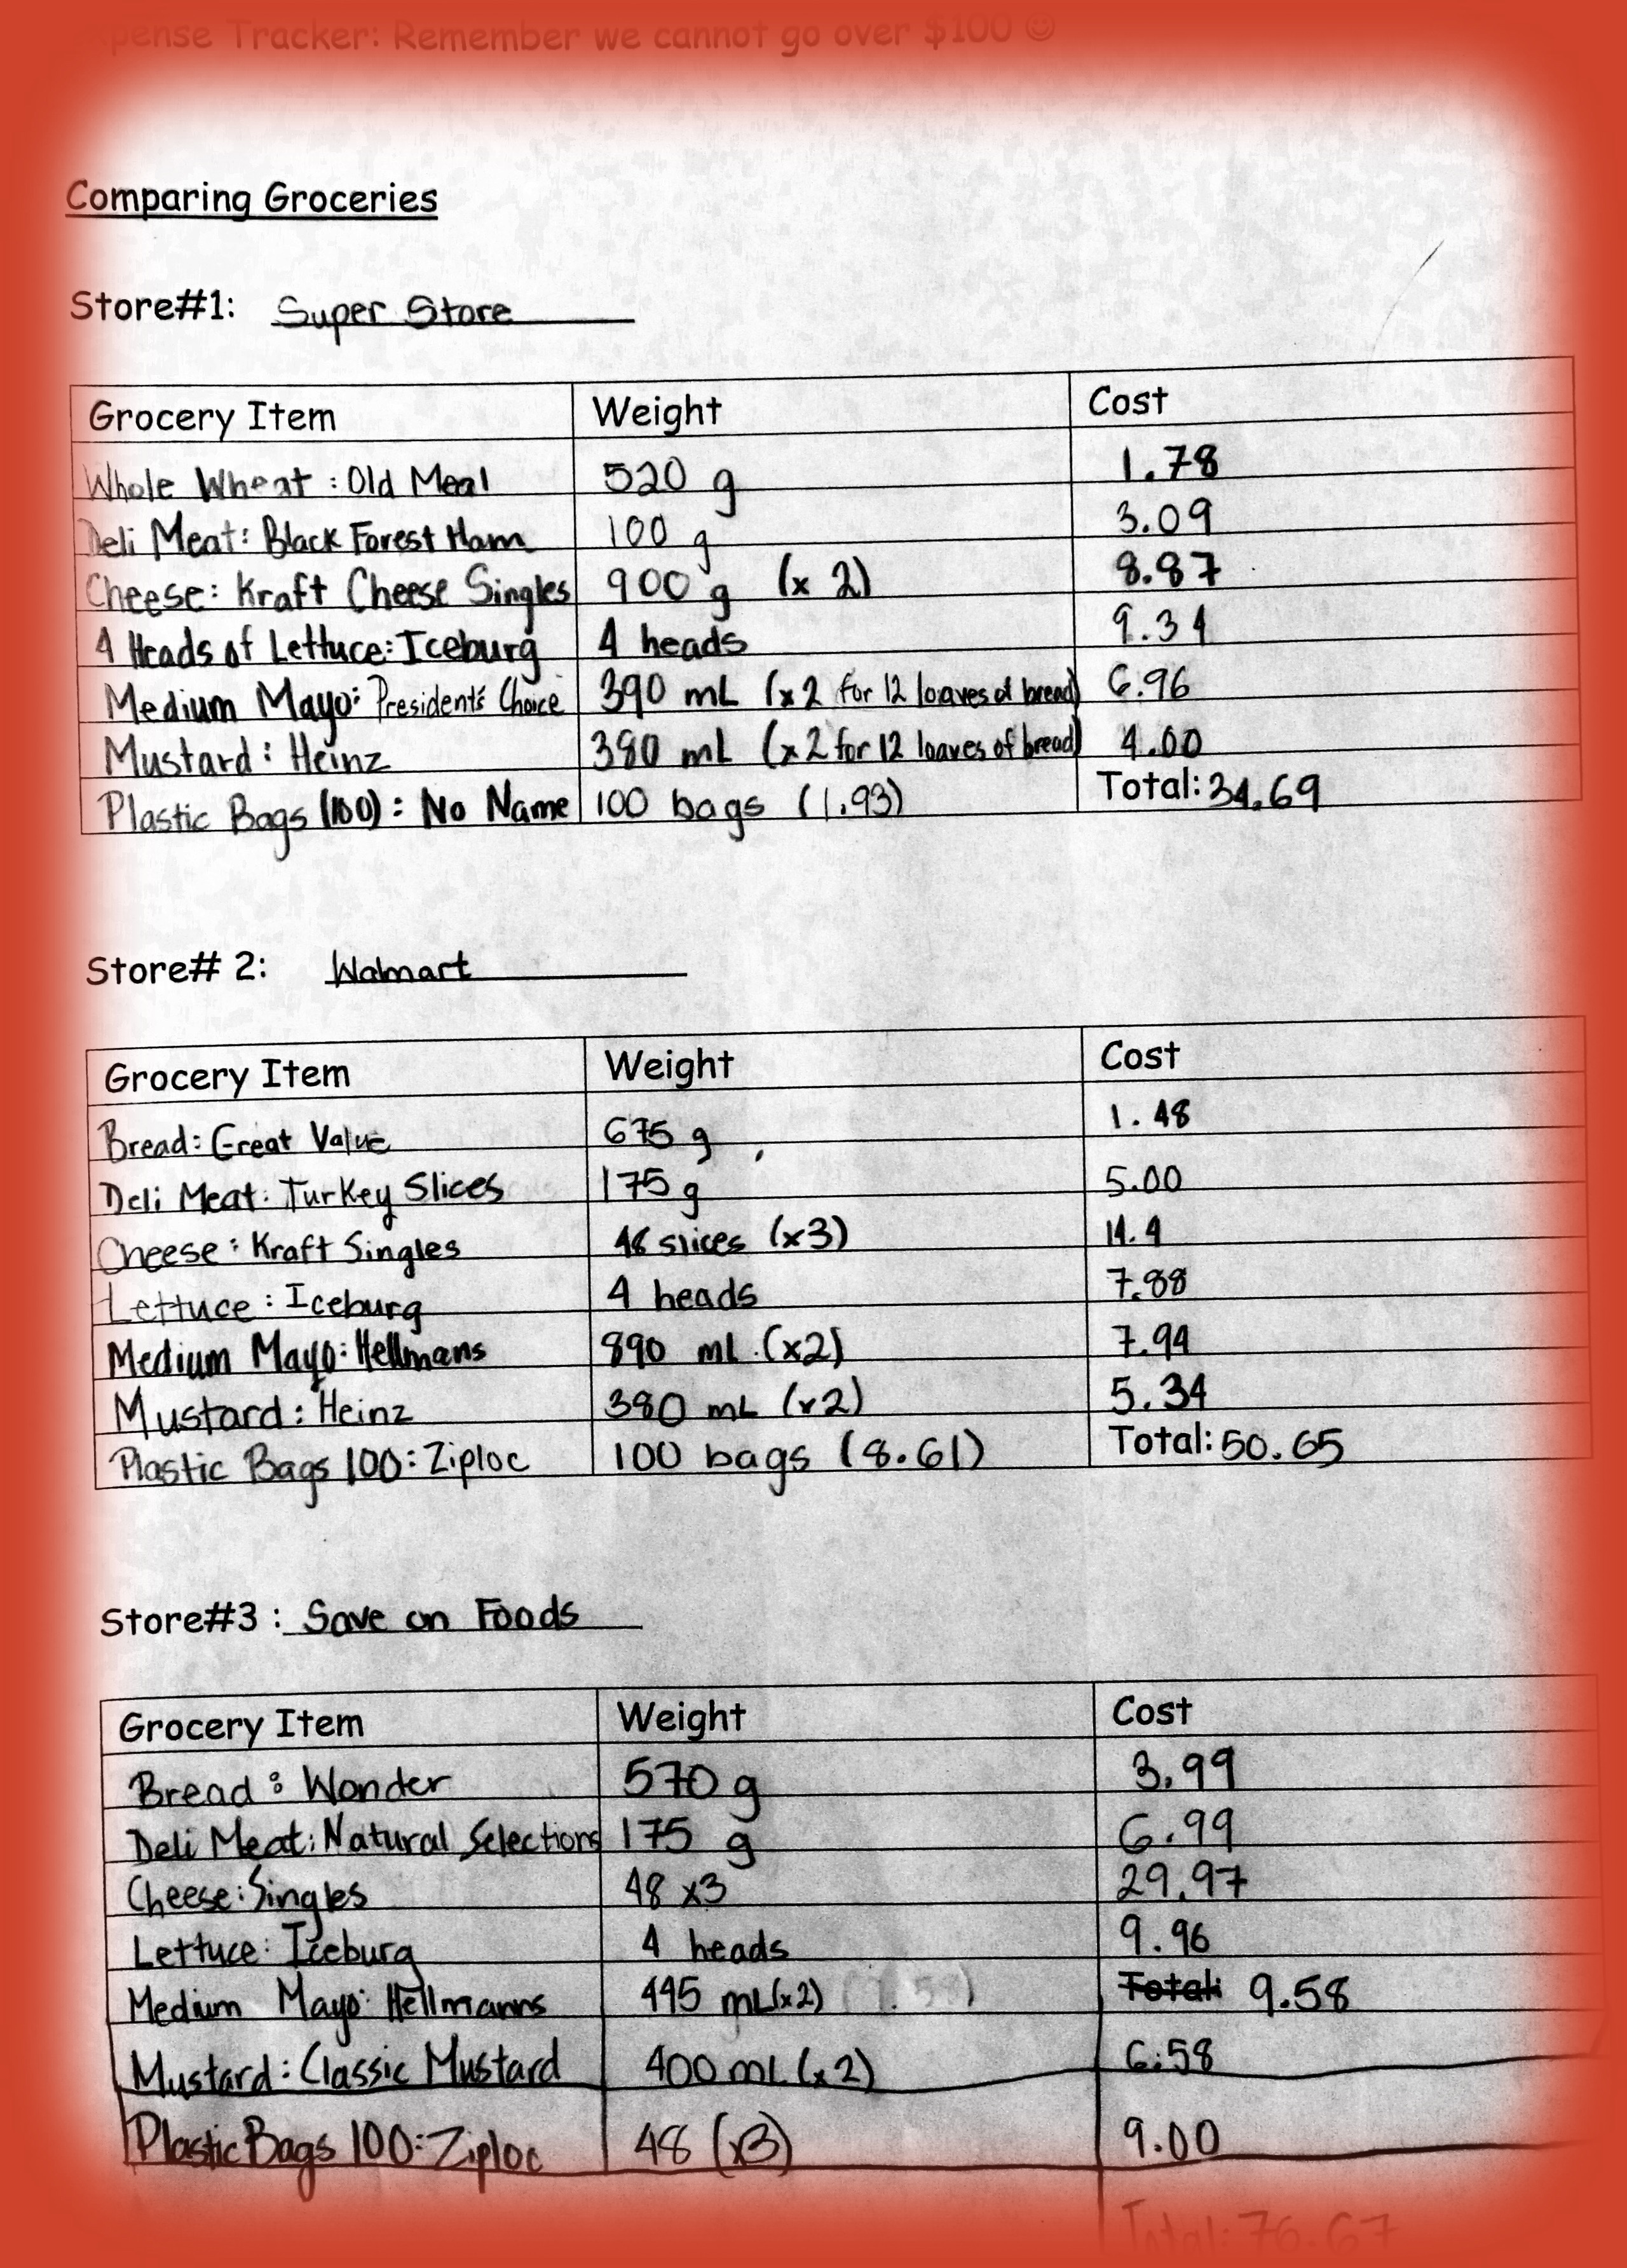 xpense Tracker: Remember we cannot go over $100 ☺
Comparing Groceries
Store#1: Super Store
Grocery Item Weight Cost
Whole Wheat : Old Meal 520 g 1.78
Deli Meat: Black Forest Ham 100 g 3.09
Cheese: Kraft Cheese Singles 900 g (x 2) 8.87
4 Heads of Lettuce: Iceburg 4 heads 9.34
Medium Mayo: President's Choice 390 mL (x2 for 12 loaves of bread) 6.96
Mustard: Heinz 380 mL (x2 for 12 loaves of bread) 4.00
Plastic Bags (100): No Name 100 bags (1.93) Total: 34.69
Store# 2: Walmart
Grocery Item Weight Cost
Bread: Great Value 675 g 1.48
Deli Meat: Turkey Slices 175 g 5.00
Cheese: Kraft Singles 48 slices (x3) 14.4
Lettuce: Iceburg 4 heads 7.88
Medium Mayo: Hellmans 890 mL (x2) 7.94
Mustard: Heinz 380 mL (x2) 5.34
Plastic Bags 100: Ziploc 100 bags (8.61) Total: 50.65
Store#3 : Save on Foods
Grocery Item Weight Cost
Bread: Wonder 570 g 3.99
Deli Meat: Natural Selections 175 g 6.99
Cheese: Singles 48 x3 29.97
Lettuce: Iceburg 4 heads 9.96
Medium Mayo: Hellmanns 445 mL(x2) Total: 9.58
Mustard: Classic Mustard 400 mL (x2) 6.58
Plastic Bags 100: Ziploc 48 (x3) 9.00
Total: 76.67